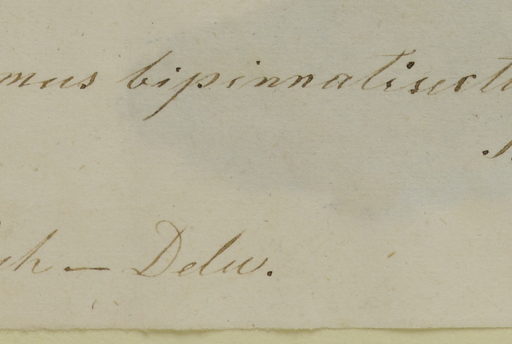 mus bipinnatisect
— Delw.